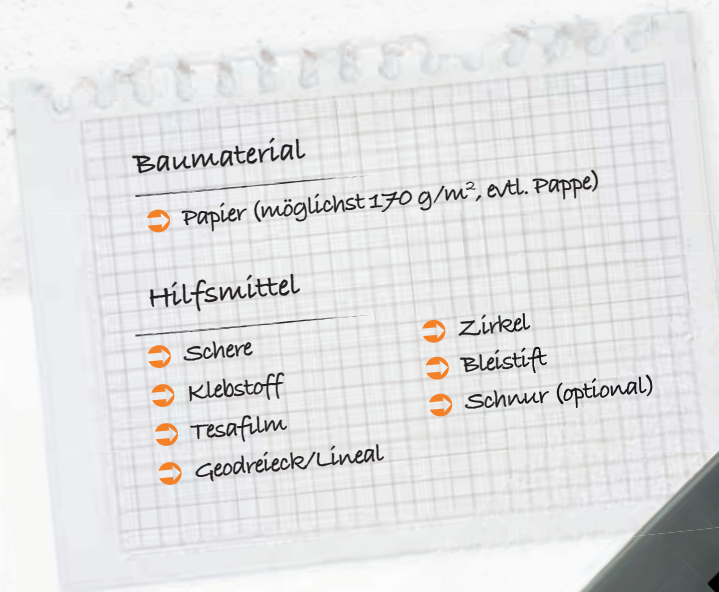 Baumaterial
Papier (möglichst 170 g/m², evtl. Pappe)
Hilfsmittel
Schere
Klebstoff
Tesafilm
Geodreieck/Lineal
Zirkel
Bleistift
Schnur (optional)